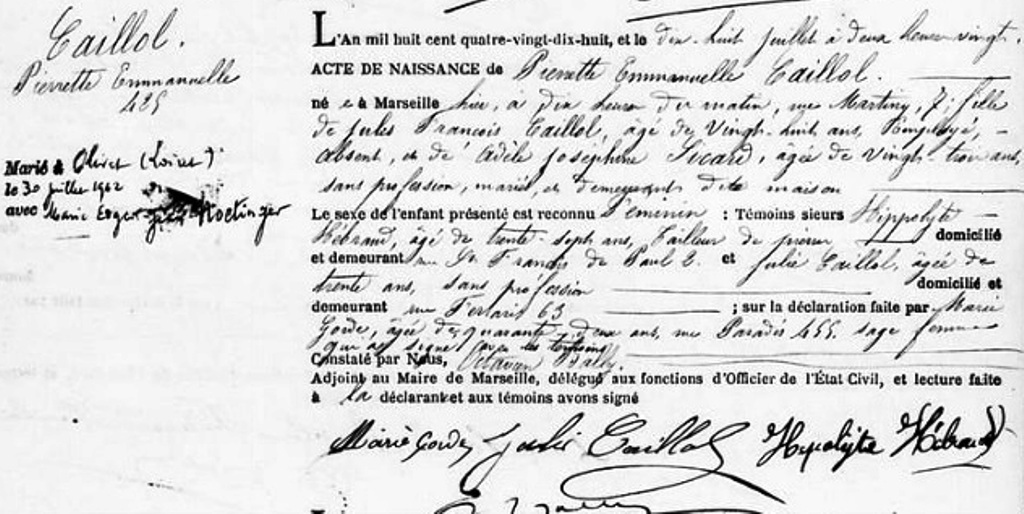 Caillol.
Pierrette Emmanuelle
425
Marié à Olivet (Loiret)
le 30 juillet 1942
avec Marie Hoctinger
L'An mil huit cent quatre-vingt-dix-huit, et le dix-huit juillet à deux heures vingt.
ACTE DE NAISSANCE de Pierrette Emmanuelle Caillol.
né e à Marseille hier, à dix heures du matin, rue Martiny, 7; fille
de Jules François Caillol, âgé de vingt-huit ans, Employé,
absent, et de Adèle Joséphine Sicard, âgée de vingt-trois ans,
sans profession, mariés, et demeurant dite maison
Le sexe de l'enfant présenté est reconnu Féminin : Témoins sieurs Hippolyte
Hébraud, âgé de trente-sept ans, Tailleur de pierres domicilié
et demeurant rue St François de Paul 2. et Julie Caillol, âgée de
trente ans, sans profession domicilié et
demeurant rue Ferrari 63 ; sur la déclaration faite par Marie
Gorde, âgée de quarante-deux ans, rue Paradis 455. sage femme
qui a signé avec les témoins
Constaté par Nous, Octavon Bally.
Adjoint au Maire de Marseille, délégué aux fonctions d'Officier de l'État Civil, et lecture faite
à la déclarant et aux témoins avons signé
Marie Gorde Julie Caillol Hippolyte Hébraud